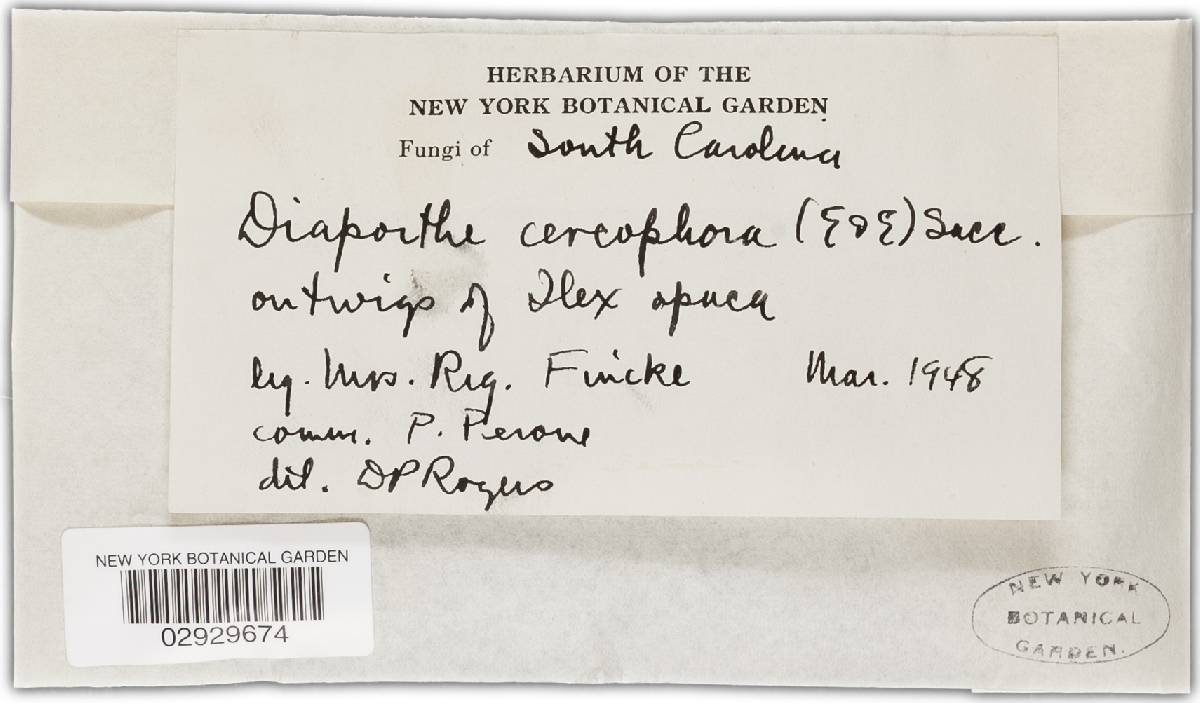 HERBARIUM OF THE
NEW YORK BOTANICAL GARDEN
Fungi of South Carolina
Diaporthe cercophora (E & E) Sacc.
on twigs of Ilex opaca
leg. Mrs. Reg. Fincke Mar. 1948
comm. P. Perone
det. DPRogers
NEW YORK BOTANICAL GARDEN
02929674
NEW YORK
BOTANICAL
GARDEN.